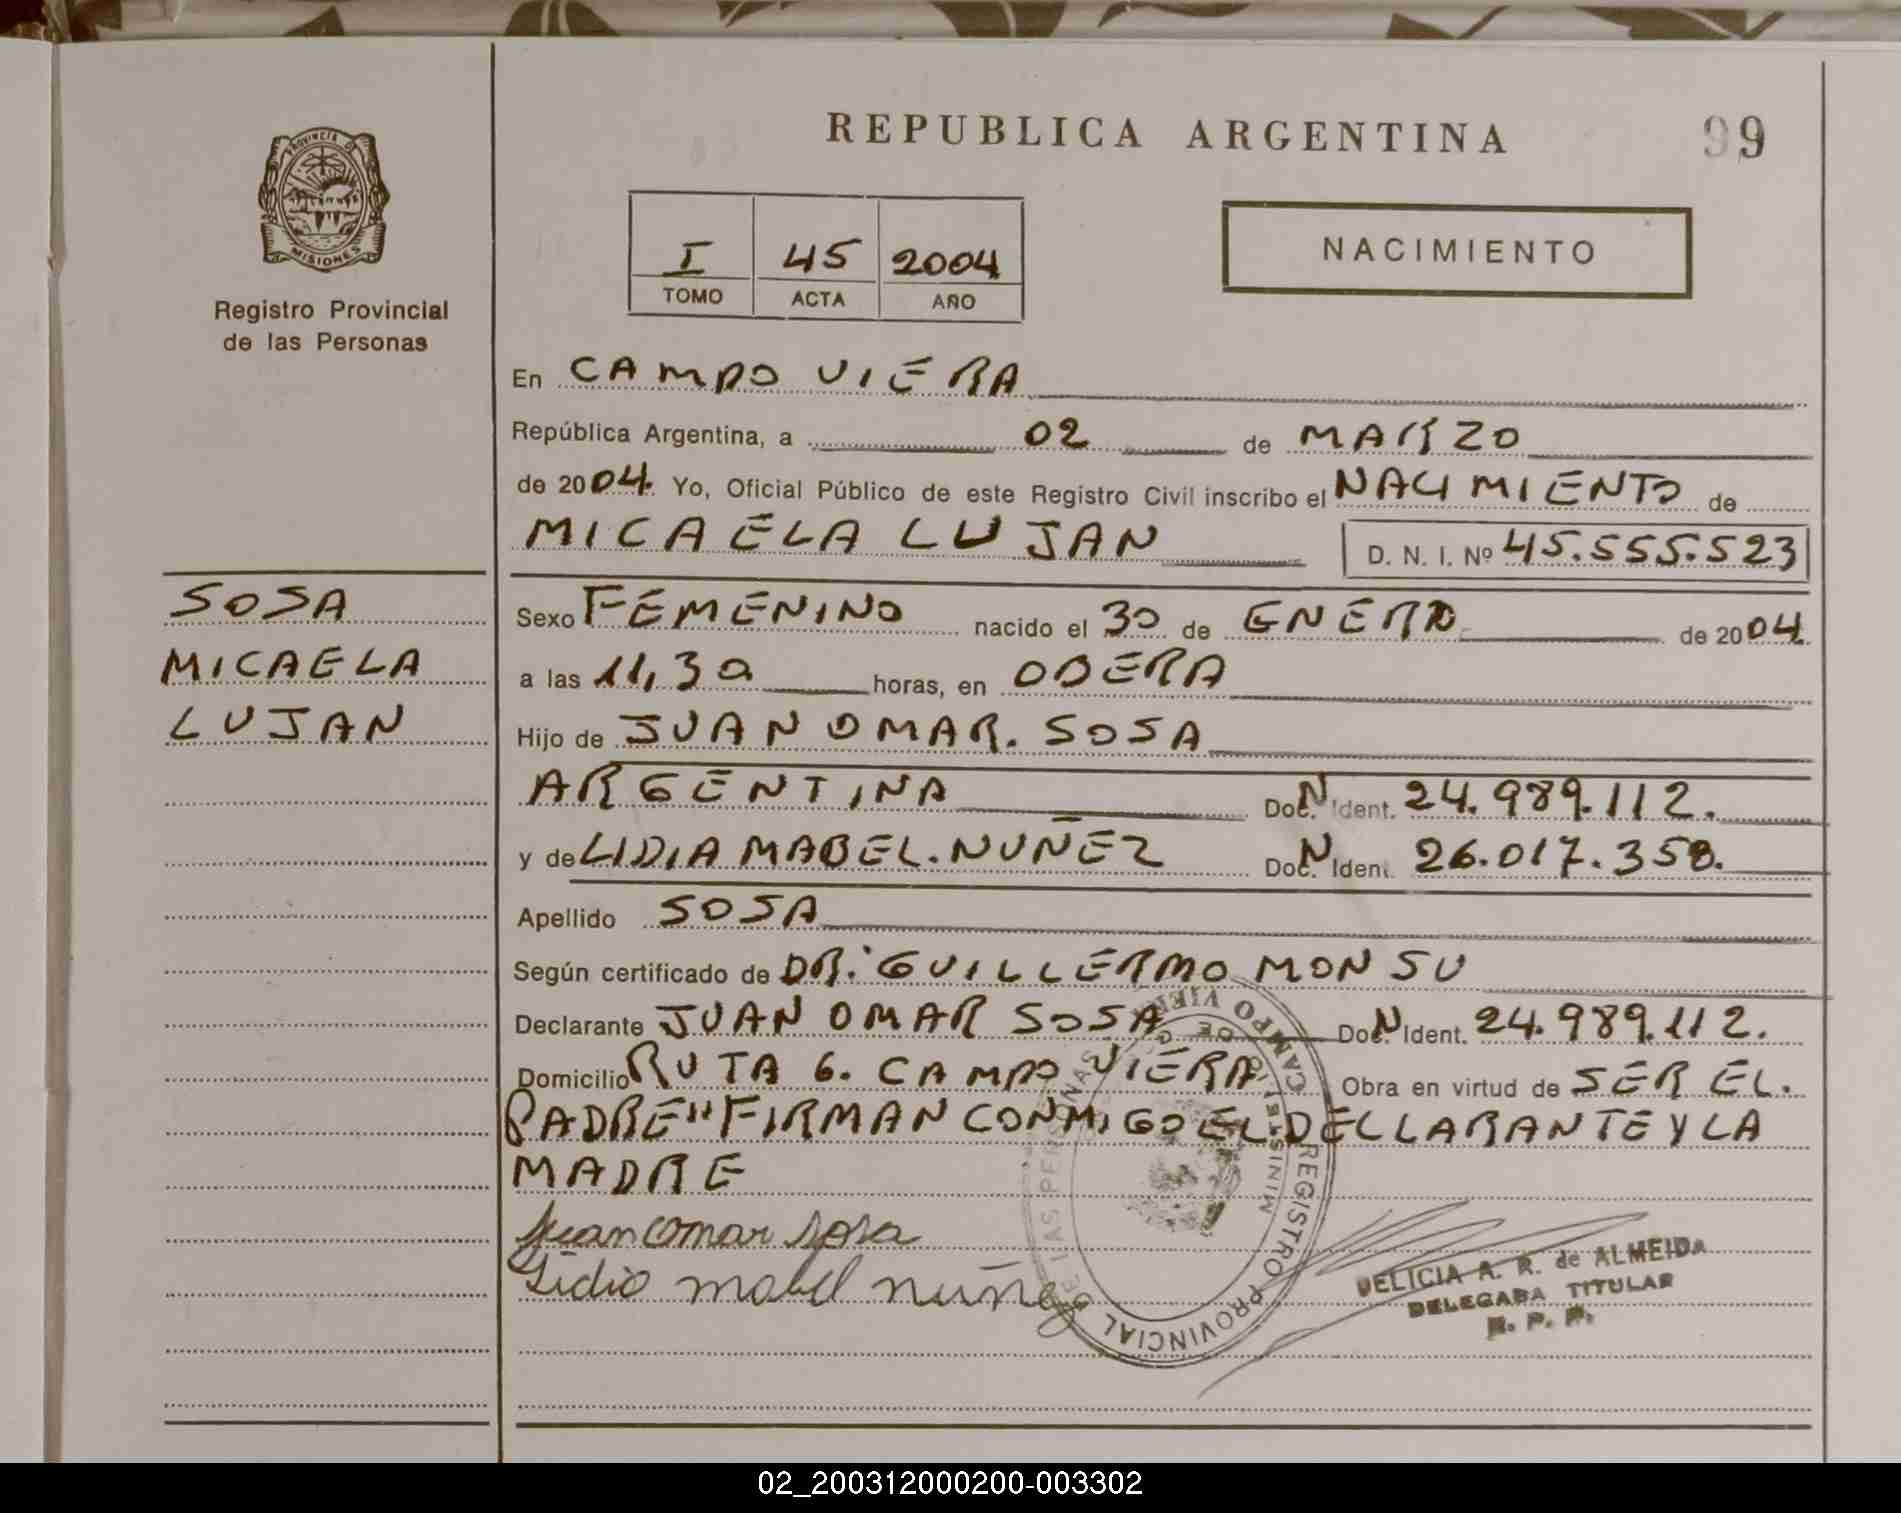 REPUBLICA ARGENTINA
99
PROVINCIA DE
MISIONES
Registro Provincial
de las Personas
I 45 2004
TOMO ACTA AÑO
NACIMIENTO
En CAMPO VIERA
República Argentina, a 02 de MARZO
de 2004. Yo, Oficial Público de este Registro Civil inscribo el NACIMIENTO de
MICAELA LUJAN D. N. I. Nº 45.555.523
SOSA
MICAELA
LUJAN
Sexo FEMENINO nacido el 30 de ENERO de 2004.
a las 11,30 horas, en OBERA
Hijo de JUAN OMAR. SOSA
ARGENTINA Doc. N Ident. 24.989.112.
y de LIDIA MABEL. NUÑEZ Doc. N Ident. 26.017.358.
Apellido SOSA
Según certificado de DR. GUILLERMO MONSU
Declarante JUAN OMAR SOSA Doc. N Ident. 24.989.112.
Domicilio RUTA 6. CAMPO VIERA Obra en virtud de SER EL.
PADRE" FIRMAN CONMIGO EL DECLARANTE Y LA
MADRE
Juan Omar Sosa
Lidia mabel nuñez
REGISTRO PROVINCIAL DE LAS PERSONAS
CAMPO VIERA
DELICIA A. R. de ALMEIDA
DELEGADA TITULAR
R. P. P.
02_200312000200-003302